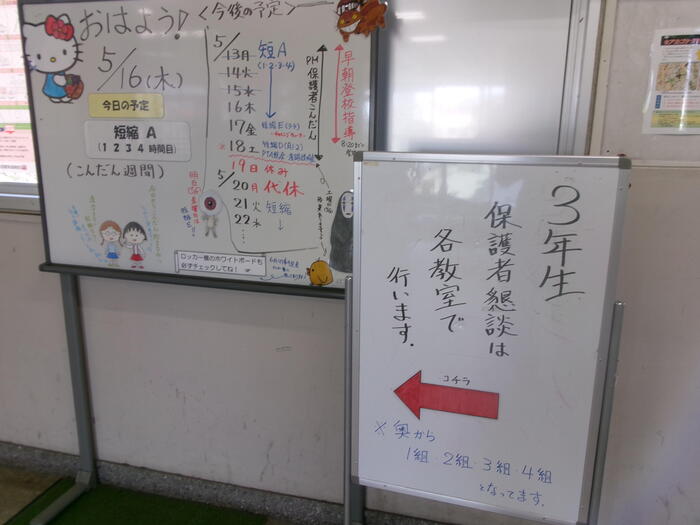 おはよう!
5/16(木)
今日の予定
短縮 A
(1 2 3 4 時間目)
(こんだん週間)
<今後の予定>
5/13月 短A
(1・2・3・4)
14火
15水
16木
17金
※18土
19日 休み
5/20月 代休
21火 短縮
22水
PM保護者こんだん
早朝登校指導
ロッカー横のホワイトボードも
必ずチェックしてね!
3年生
保護者懇談は
各教室で
行います.
コチラ
※奥から
1組・2組・3組・4組
となってます.